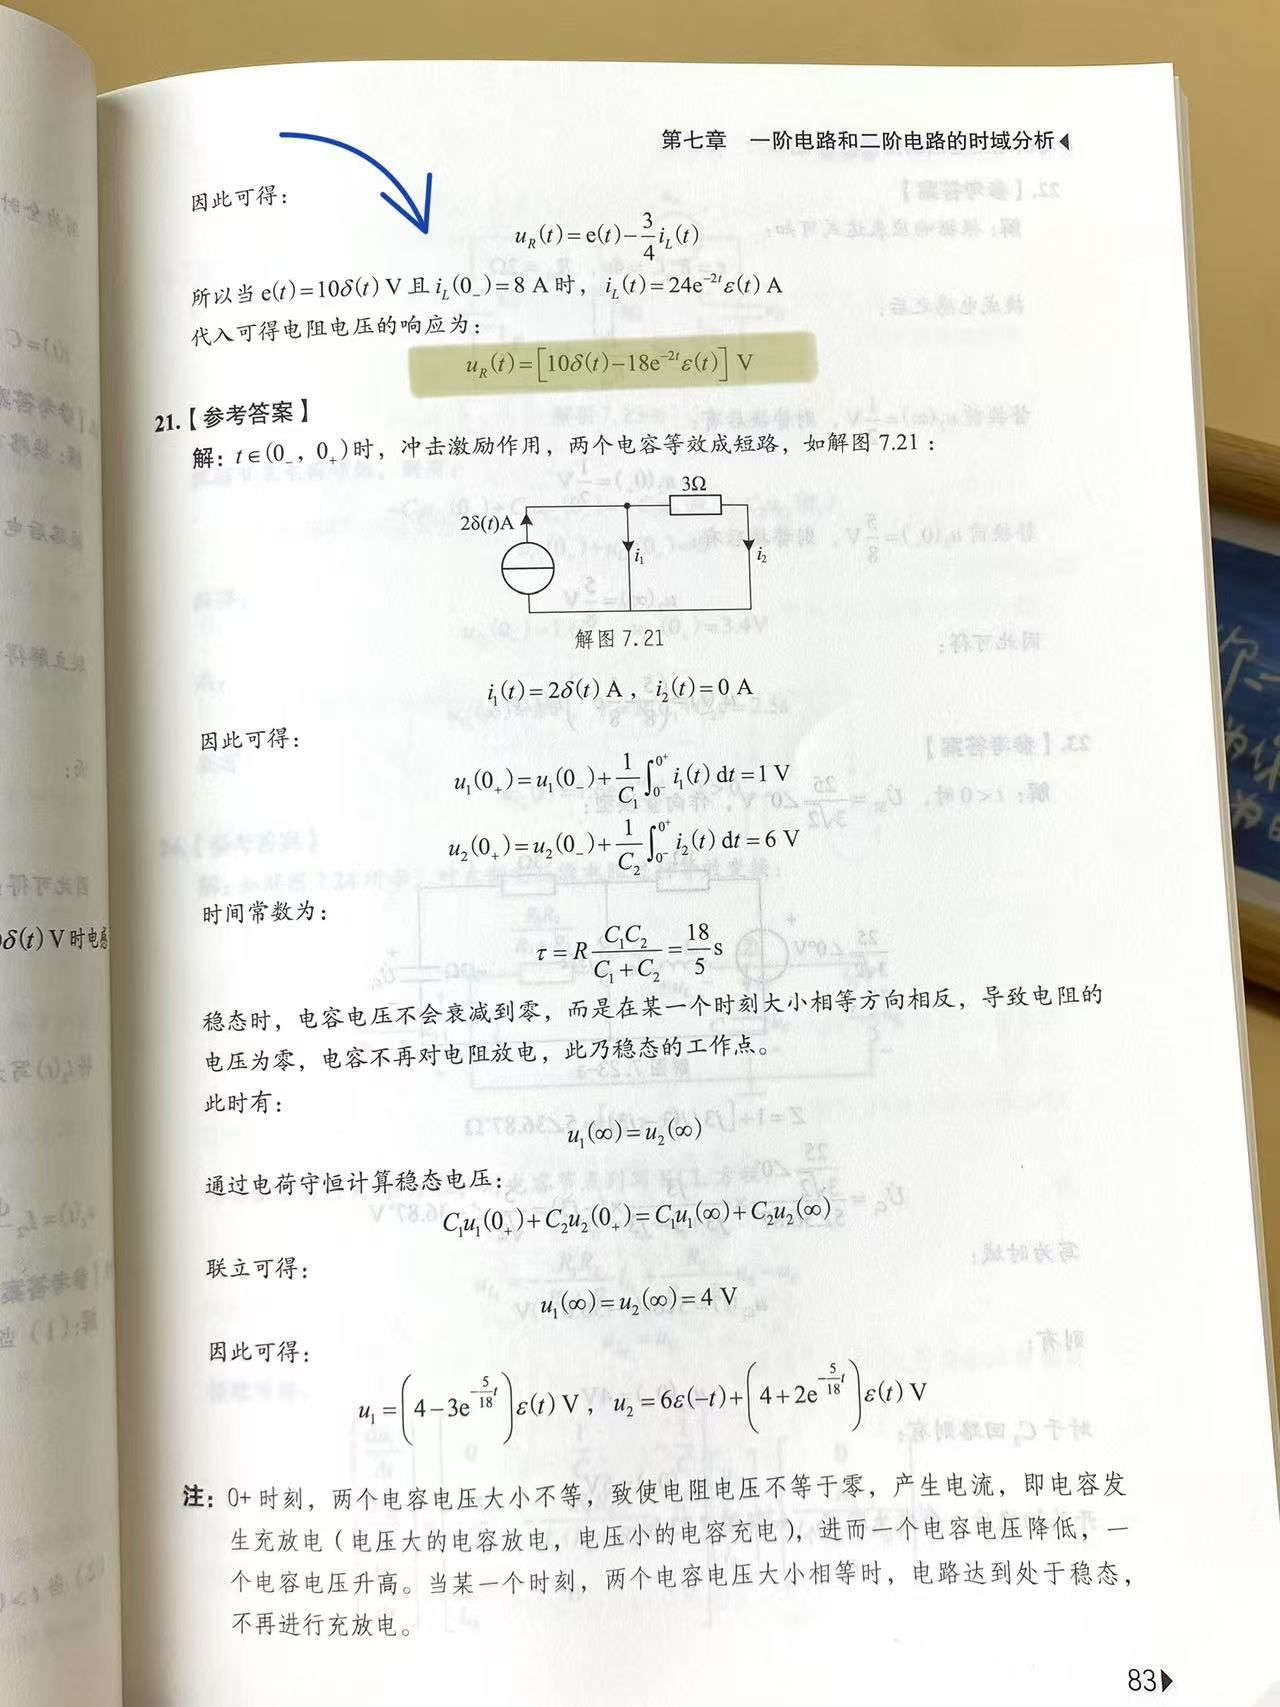 第七章 一阶电路和二阶电路的时域分析
因此可得：
u_R(t)=e(t)-\frac{3}{4}i_L(t)
所以当 e(t)=10δ(t) V 且 i_L(0_-)=8 A 时，i_L(t)=24e^{-2t}ε(t) A
代入可得电阻电压的响应为：
u_R(t)=[10δ(t)-18e^{-2t}ε(t)] V
21.【参考答案】
解：t∈(0_-，0_+)时，冲击激励作用，两个电容等效成短路，如解图 7.21：
3Ω
2δ(t)A
i_1
i_2
解图 7.21
i_1(t)=2δ(t) A，i_2(t)=0 A
因此可得：
u_1(0_+)=u_1(0_-)+\frac{1}{C_1}∫_{0^-}^{0^+} i_1(t) dt=1 V
u_2(0_+)=u_2(0_-)+\frac{1}{C_2}∫_{0^-}^{0^+} i_2(t) dt=6 V
时间常数为：
τ=R\frac{C_1C_2}{C_1+C_2}=\frac{18}{5}s
稳态时，电容电压不会衰减到零，而是在某一个时刻大小相等方向相反，导致电阻的
电压为零，电容不再对电阻放电，此乃稳态的工作点。
此时有：
u_1(∞)=u_2(∞)
通过电荷守恒计算稳态电压：
C_1u_1(0_+)+C_2u_2(0_+)=C_1u_1(∞)+C_2u_2(∞)
联立可得：
u_1(∞)=u_2(∞)=4 V
因此可得：
u_1=(4-3e^{-\frac{5}{18}t})ε(t) V，u_2=6ε(-t)+(4+2e^{-\frac{5}{18}t})ε(t) V
注：0+时刻，两个电容电压大小不等，致使电阻电压不等于零，产生电流，即电容发
生充放电（电压大的电容放电，电压小的电容充电），进而一个电容电压降低，一
个电容电压升高。当某一个时刻，两个电容电压大小相等时，电路达到处于稳态，
不再进行充放电。
83
δ(t) V 时电感